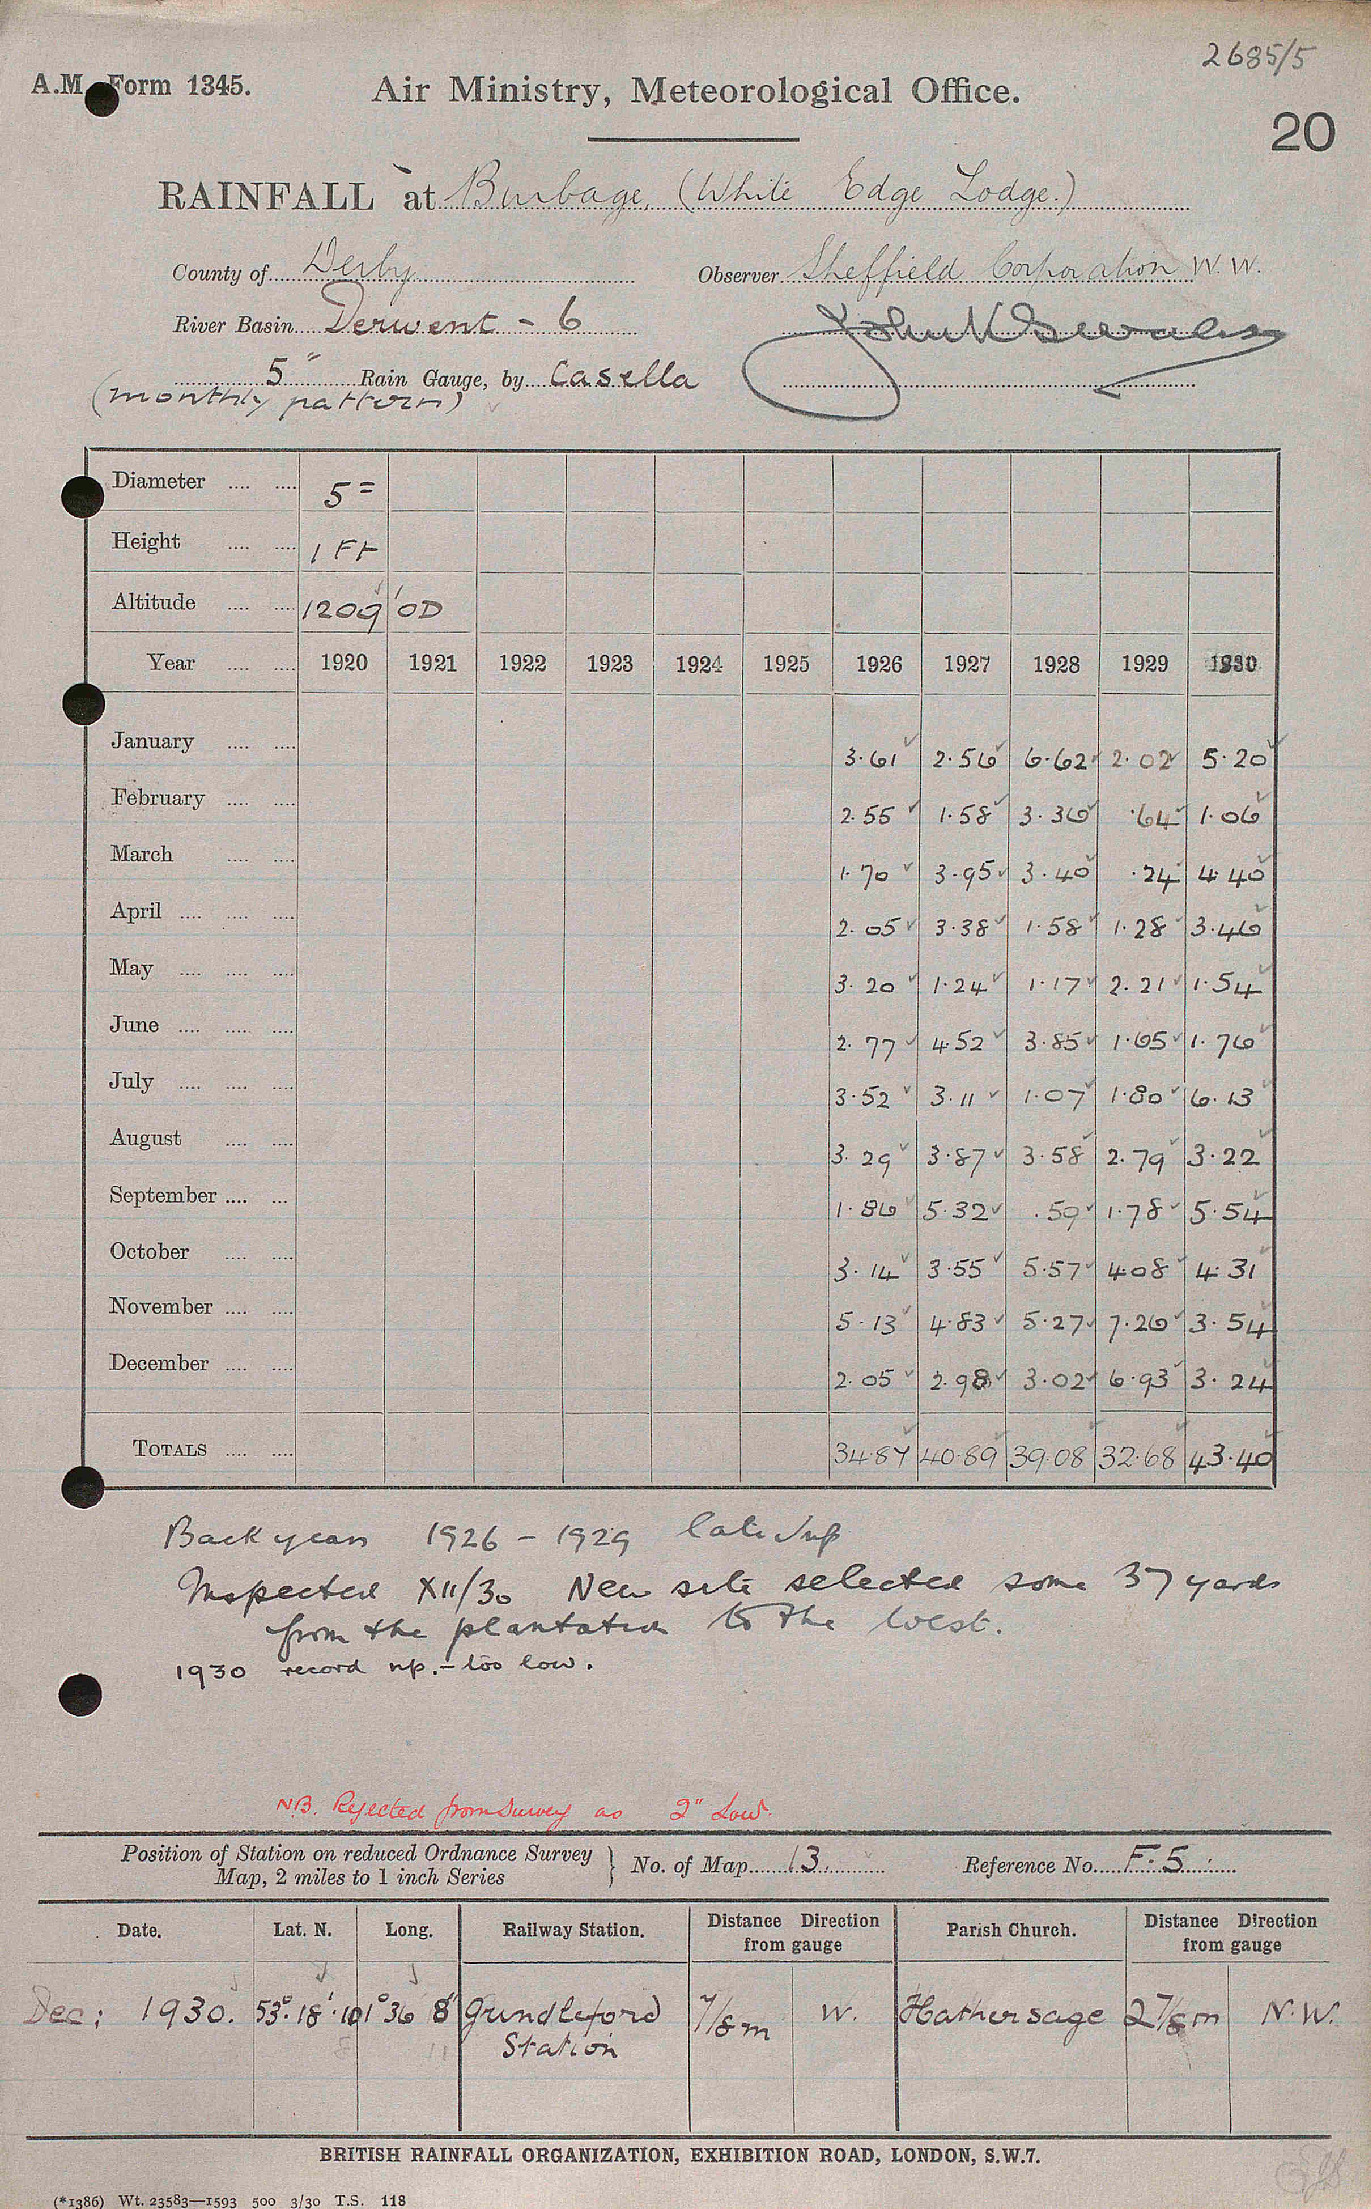 2685/5
A.M. Form 1345.
Air Ministry, Meteorological Office.
20
RAINFALL at Burbage, (White Edge Lodge.)
County of Derby Observer Sheffield Corporation W.W.
River Basin Derwent - 6
5" Rain Gauge, by Casella
(monthly pattern)
Diameter .... .... 5"
Height .... .... 1 Ft
Altitude .... .... 1209' OD
Year .... .... 1920 1921 1922 1923 1924 1925 1926 1927 1928 1929 1930
January .... .... 3.61 2.56 6.62 2.02 5.20
February .... .... 2.55 1.58 3.36 .64 1.06
March .... .... 1.70 3.95 3.40 .24 4.40
April .... .... .... 2.05 3.38 1.58 1.28 3.46
May .... .... .... 3.20 1.24 1.17 2.21 1.54
June .... .... .... 2.77 4.52 3.85 1.65 1.76
July .... .... .... 3.52 3.11 1.07 1.80 6.13
August .... .... 3.29 3.87 3.58 2.79 3.22
September .... .... 1.86 5.32 .59 1.78 5.54
October .... .... 3.14 3.55 5.57 4.08 4.31
November .... .... 5.13 4.83 5.27 7.26 3.54
December .... .... 2.05 2.98 3.02 6.93 3.24
TOTALS .... .... 34.87 40.89 39.08 32.68 43.40
Back years 1926 - 1929
Inspected XII/30 New site selected some 37 yards
from the plantation to the west.
1930 record up. - too low.
N.B. Rejected from Survey as 2" Low.
Position of Station on reduced Ordnance Survey
Map, 2 miles to 1 inch Series } No. of Map 13 Reference No. F. 5.
Date. Lat. N. Long. Railway Station. Distance Direction from gauge Parish Church. Distance Direction from gauge
Dec: 1930. 53°.18'.10 1°36 8" Grindleford 7/8 m W. Hathersage 2 7/8 m N.W.
Station
8 11
BRITISH RAINFALL ORGANIZATION, EXHIBITION ROAD, LONDON, S.W.7.
(*1386) Wt. 23583—1593 500 3/30 T.S. 118